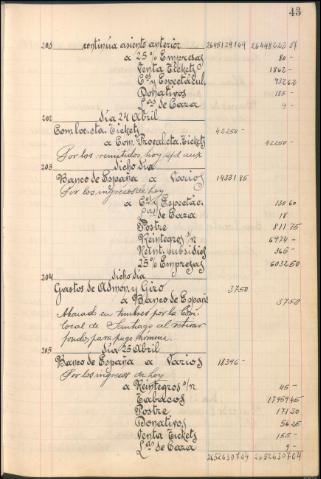 43
201 continúa asiento anterior 2645129149
a 25% Empresas 80 -
Venta Tickets 1862 -
Cªs y Espectácul.
Donativos
Lªs de Caza 9 -
202 día 24 Abril
Com. loc. cta. Tickets 42250 -
a Com. Provcal. cta. Tickets 42250 -
Por los remitidos hoy
203 dicho día
Banco de España a Varios
Por los ingresos de hoy
a Cªs y Espectác.
de Caza 18
Postre 811 75
Reintegros s/n 6974 -
Reint. Subsidios 365 -
25% Empresas 6032 50
204 dicho día
Gastos de Admón. y Giro 37 50
a Banco de España 37 50
Abonado en timbres por la Com.
local de Santiago al retirar
fondos para pago nómina.
205 día 25 Abril
Banco de España a Varios 18396 -
Por los ingresos de hoy
a Reintegros s/n 45 -
Tabacos 17954 45
Postre 171 30
Donativos 56 25
Venta Tickets 155 -
Lªs de Caza 9 -
2652630764 2652630764